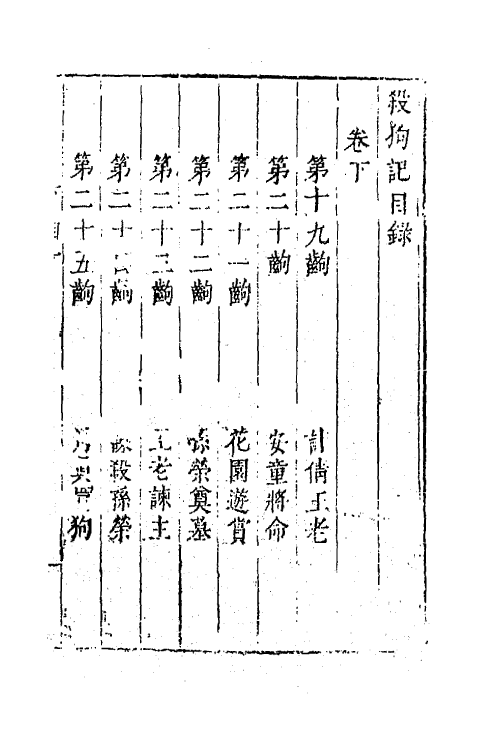 殺狗記目錄
卷下
第十九齣 計倩王老
第二十齣 安童將命
第二十一齣 花園遊賞
第二十二齣 孫榮奠墓
第二十三齣 王老諫主
第二十四齣 謀殺孫榮
第二十五齣 月真買狗